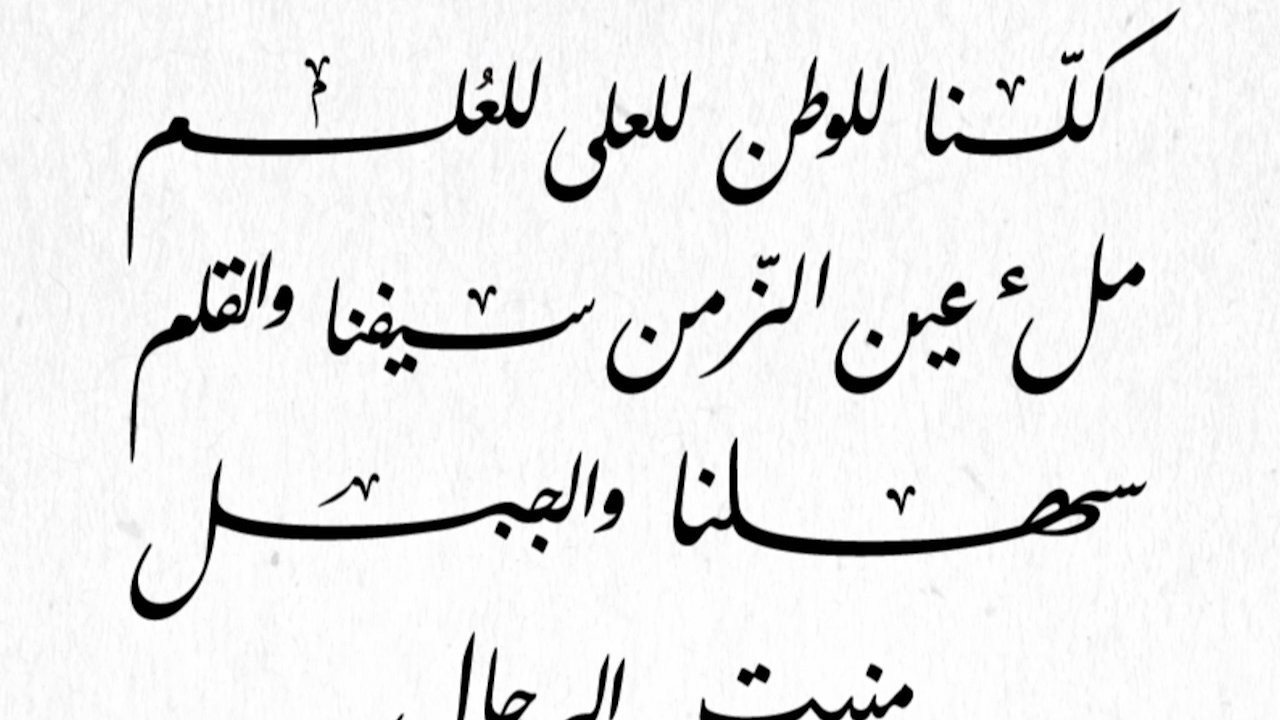 كلّنا للوطن للعلى للعُلم
ملء عين الزّمن سيفنا والقلم
سهلنا والجبل
منبت الرجال